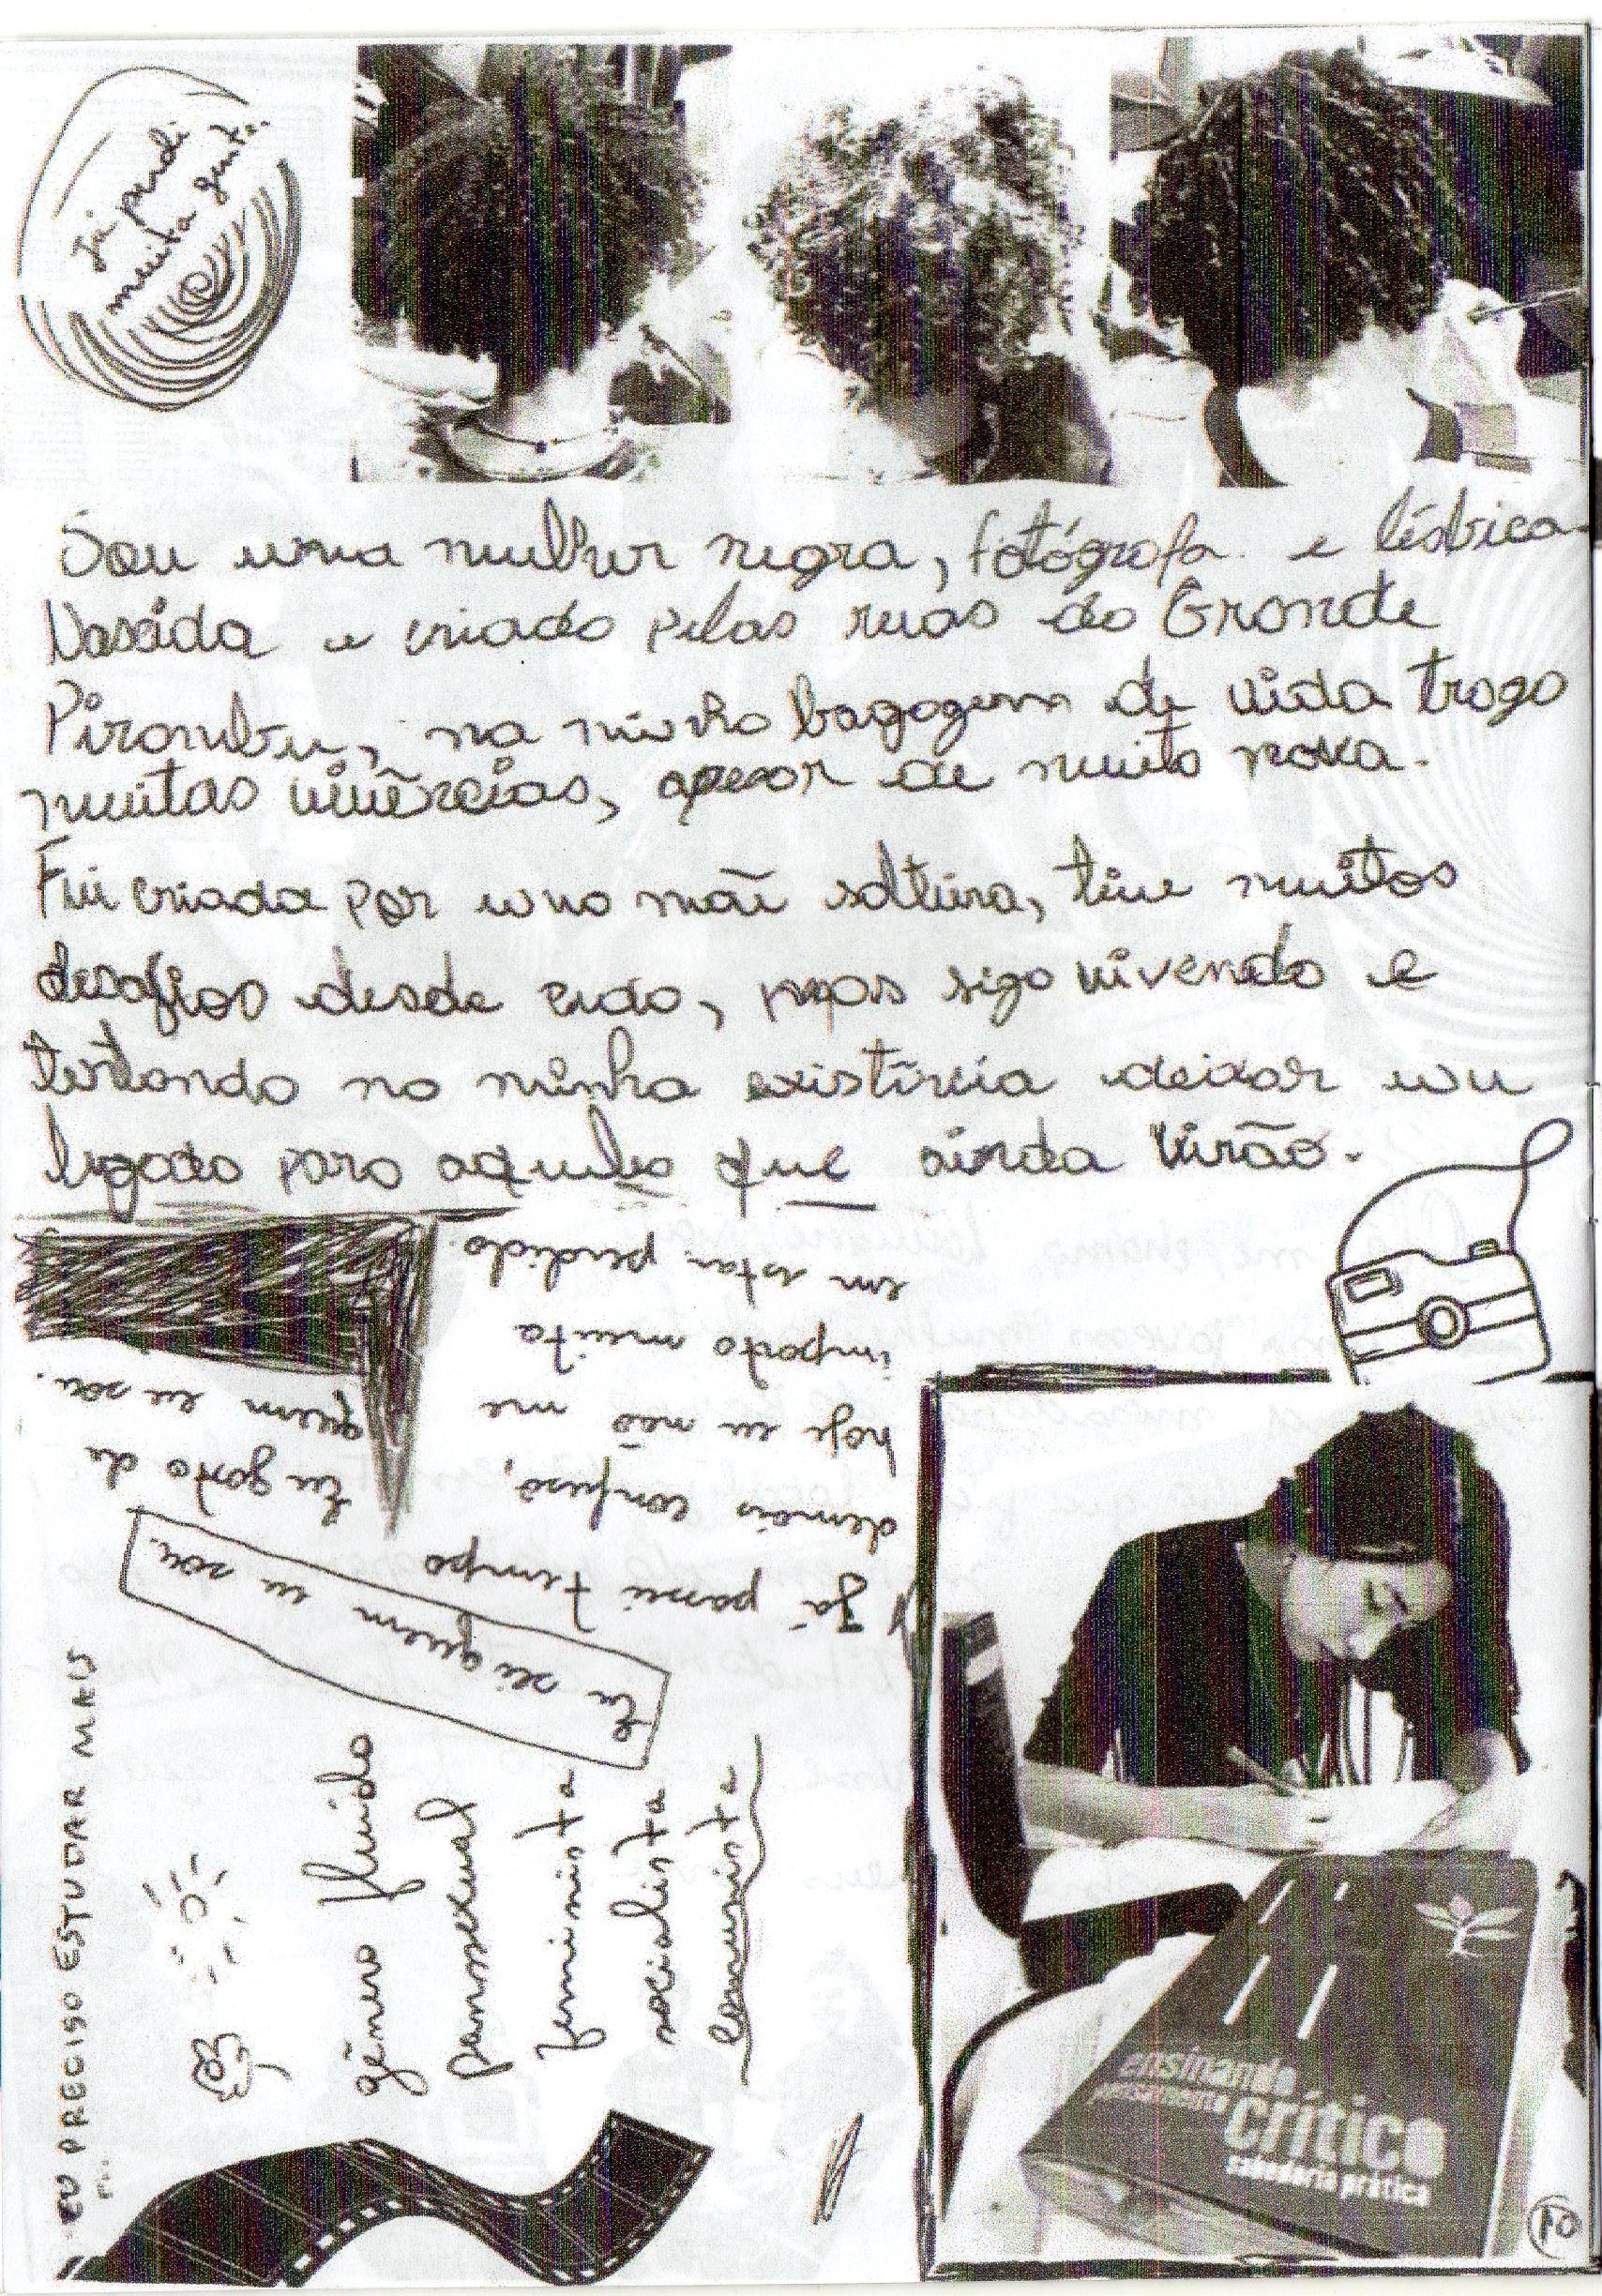 Já perdi
muita gente.
Sou uma mulher negra, fotógrafa e lésbica.
Nascida e criado pelas ruas do Grande
Pirambu, na minha bagagem de vida trago
muitas vivências, apesar de muito nova.
Fui criada por uma mãe solteira, tive muitos
desafios desde cedo, mas sigo vivendo e
tentando na minha existência deixar um
legado para aqueles que ainda virão.
Já passei tempo
demais confuso,
hoje eu não me
importo muito
em estar perdido.
Eu gosto de
quem eu sou.
Eu sei quem eu sou.
gênero fluido
pansexual
feminista
socialista
comunista
EU PRECISO ESTUDAR MAIS
ensinando
pensamento
crítico
sabedoria prática
10